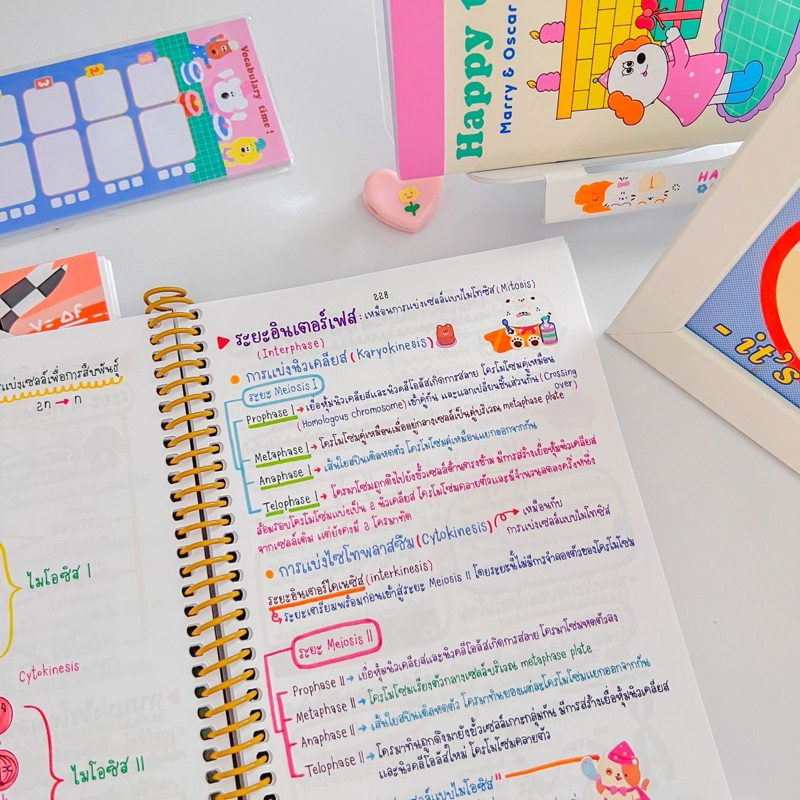 Vocabulary time!
Happy
Marry & Oscar
HA
- it's
แบ่งเซลล์เพื่อการสืบพันธุ์
2n → n
ไมโอซิส I
Cytokinesis
ไมโอซิส II
228
ระยะอินเตอร์เฟส : เหมือนการแบ่งเซลล์แบบไมโทซิส (Mitosis)
(Interphase)
การแบ่งนิวเคลียส (Karyokinesis)
ระยะ Meiosis I
Prophase I → เยื่อหุ้มนิวเคลียสและนิวคลีโอลัสเกิดการสลาย โครโมโซมคู่เหมือน
(Homologous chromosome) เข้าคู่กัน และแลกเปลี่ยนชิ้นส่วนกัน (Crossing over)
Metaphase I → โครโมโซมคู่เหมือนเมื่ออยู่กลางเซลล์เป็นคู่บริเวณ metaphase plate
Anaphase I → เส้นใยสปินเดิลหดตัว โครโมโซมคู่เหมือนแยกออกจากกัน
Telophase I → โครมาโซมถูกดึงไปยังขั้วเซลล์ด้านตรงข้าม มีการสร้างเยื่อหุ้มนิวเคลียส
ล้อมรอบโครโมโซมแบ่งเป็น 2 นิวเคลียส โครโมโซมคลายตัวและมีจำนวนลดลงครึ่งหนึ่ง
จากเซลล์เดิม แต่ยังคงมี 2 โครมาทิด
การแบ่งไซโทพลาสซึม (Cytokinesis) → เหมือนกับ
การแบ่งเซลล์แบบไมโทซิส
ระยะอินเตอร์ไคเนซิส (interkinesis)
ระยะเตรียมพร้อมก่อนเข้าสู่ระยะ Meiosis II โดยระยะนี้ไม่มีการจำลองตัวของโครโมโซม
ระยะ Meiosis II
Prophase II → เยื่อหุ้มนิวเคลียสและนิวคลีโอลัสเกิดการสลาย โครมาโซมหดตัวลง
Metaphase II → โครโมโซมเรียงตัวกลางเซลล์บริเวณ metaphase plate
Anaphase II → เส้นใยสปินเดิลหดตัว โครมาทินของแต่ละโครโมโซมแยกออกจากกัน
Telophase II → โครมาทินถูกดึงมายังขั้วเซลล์เกาะกลุ่มกัน มีการสร้างเยื่อหุ้มนิวเคลียส
และนิวคลีโอลัสใหม่ โครโมโซมคลายตัว